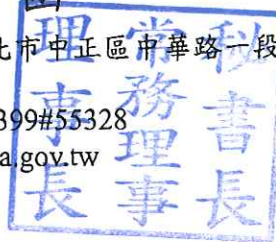 北市中正區中華路一段
399#55328
a.gov.tw
秘書長
常務理事
理事長